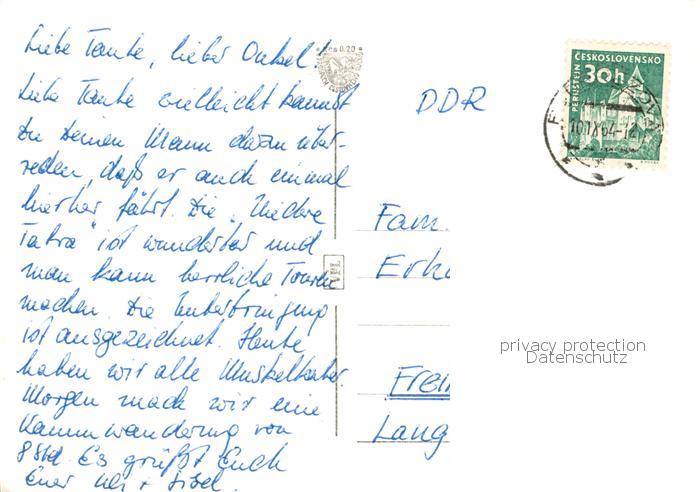 Liebe Tante, lieber Onkel!
Liebe Tante vielleicht kannst
Du Deinen Mann dazu über-
reden, daß er auch einmal
hierher fährt. Die "Niedere
Tatra" ist wunderbar und
man kann herrliche Touren
machen. Die Unterbringung
ist ausgezeichnet. Heute
haben wir alle Muskelkater
Morgen mach wir eine
Kammwanderung von
8 Std. Es grüßt Euch
Euer +
Kčs 0.20
VPL
DDR
ČESKOSLOVENSKO
30h
PERNŠTEJN
10.IX.64-12
Fam.
Erk
Frei
Lang
privacy protection
Datenschutz